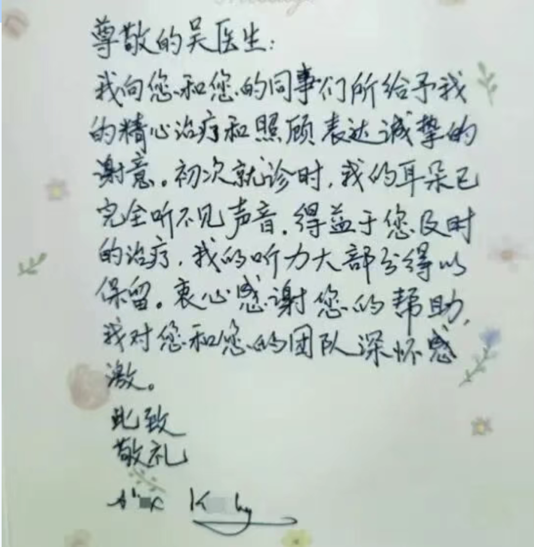 尊敬的吴医生:
我向您和您的同事们所给予我
的精心治疗和照顾表达诚挚的
谢意。初次就诊时,我的耳朵已
完全听不见声音.得益于您及时
的治疗,我的听力大部分得以
保留。衷心感谢您的帮助,
我对您和您的团队深怀感
激。
此致
敬礼